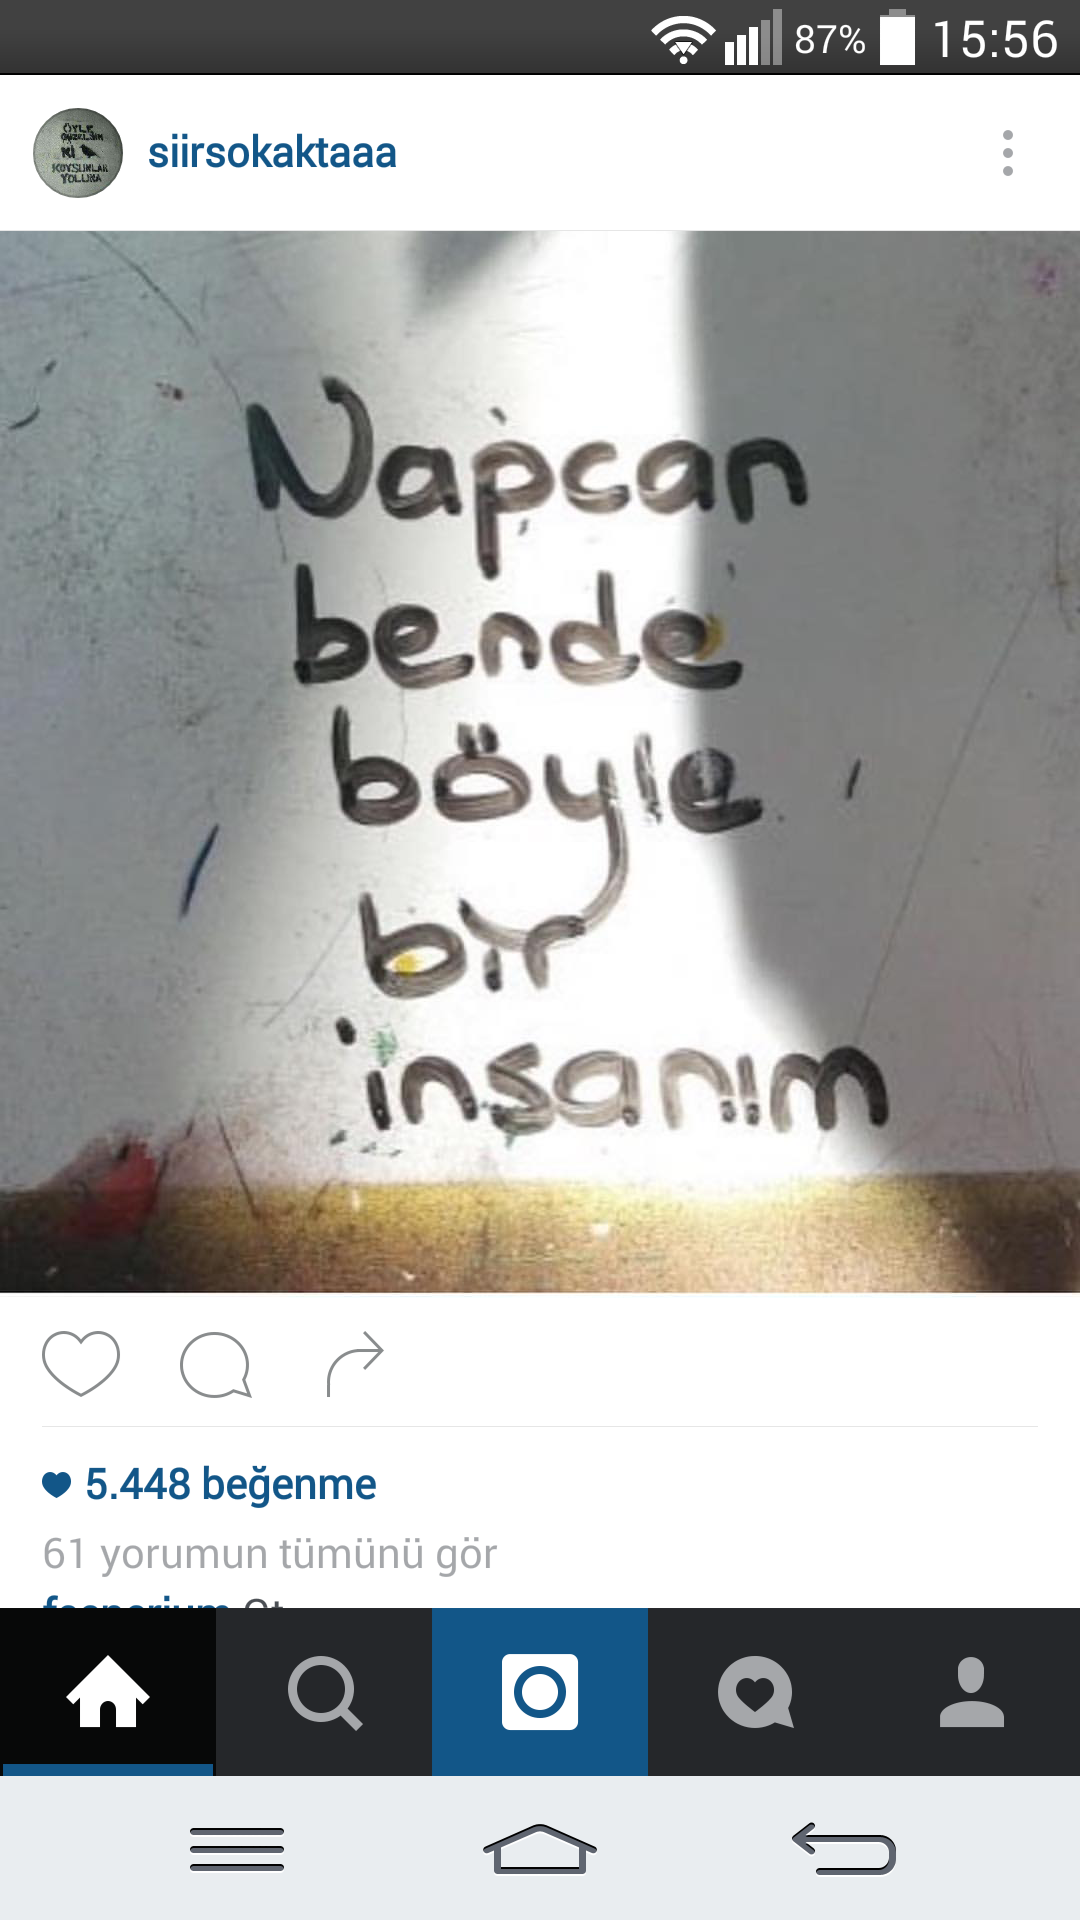 87% 15:56
ÖYLE
GÜZELSİN
Kİ
KOYSUNLAR
YOLUNA
siirsokaktaaa
Napcan
bende
böyle
bir
insanım
5.448 beğenme
61 yorumun tümünü gör